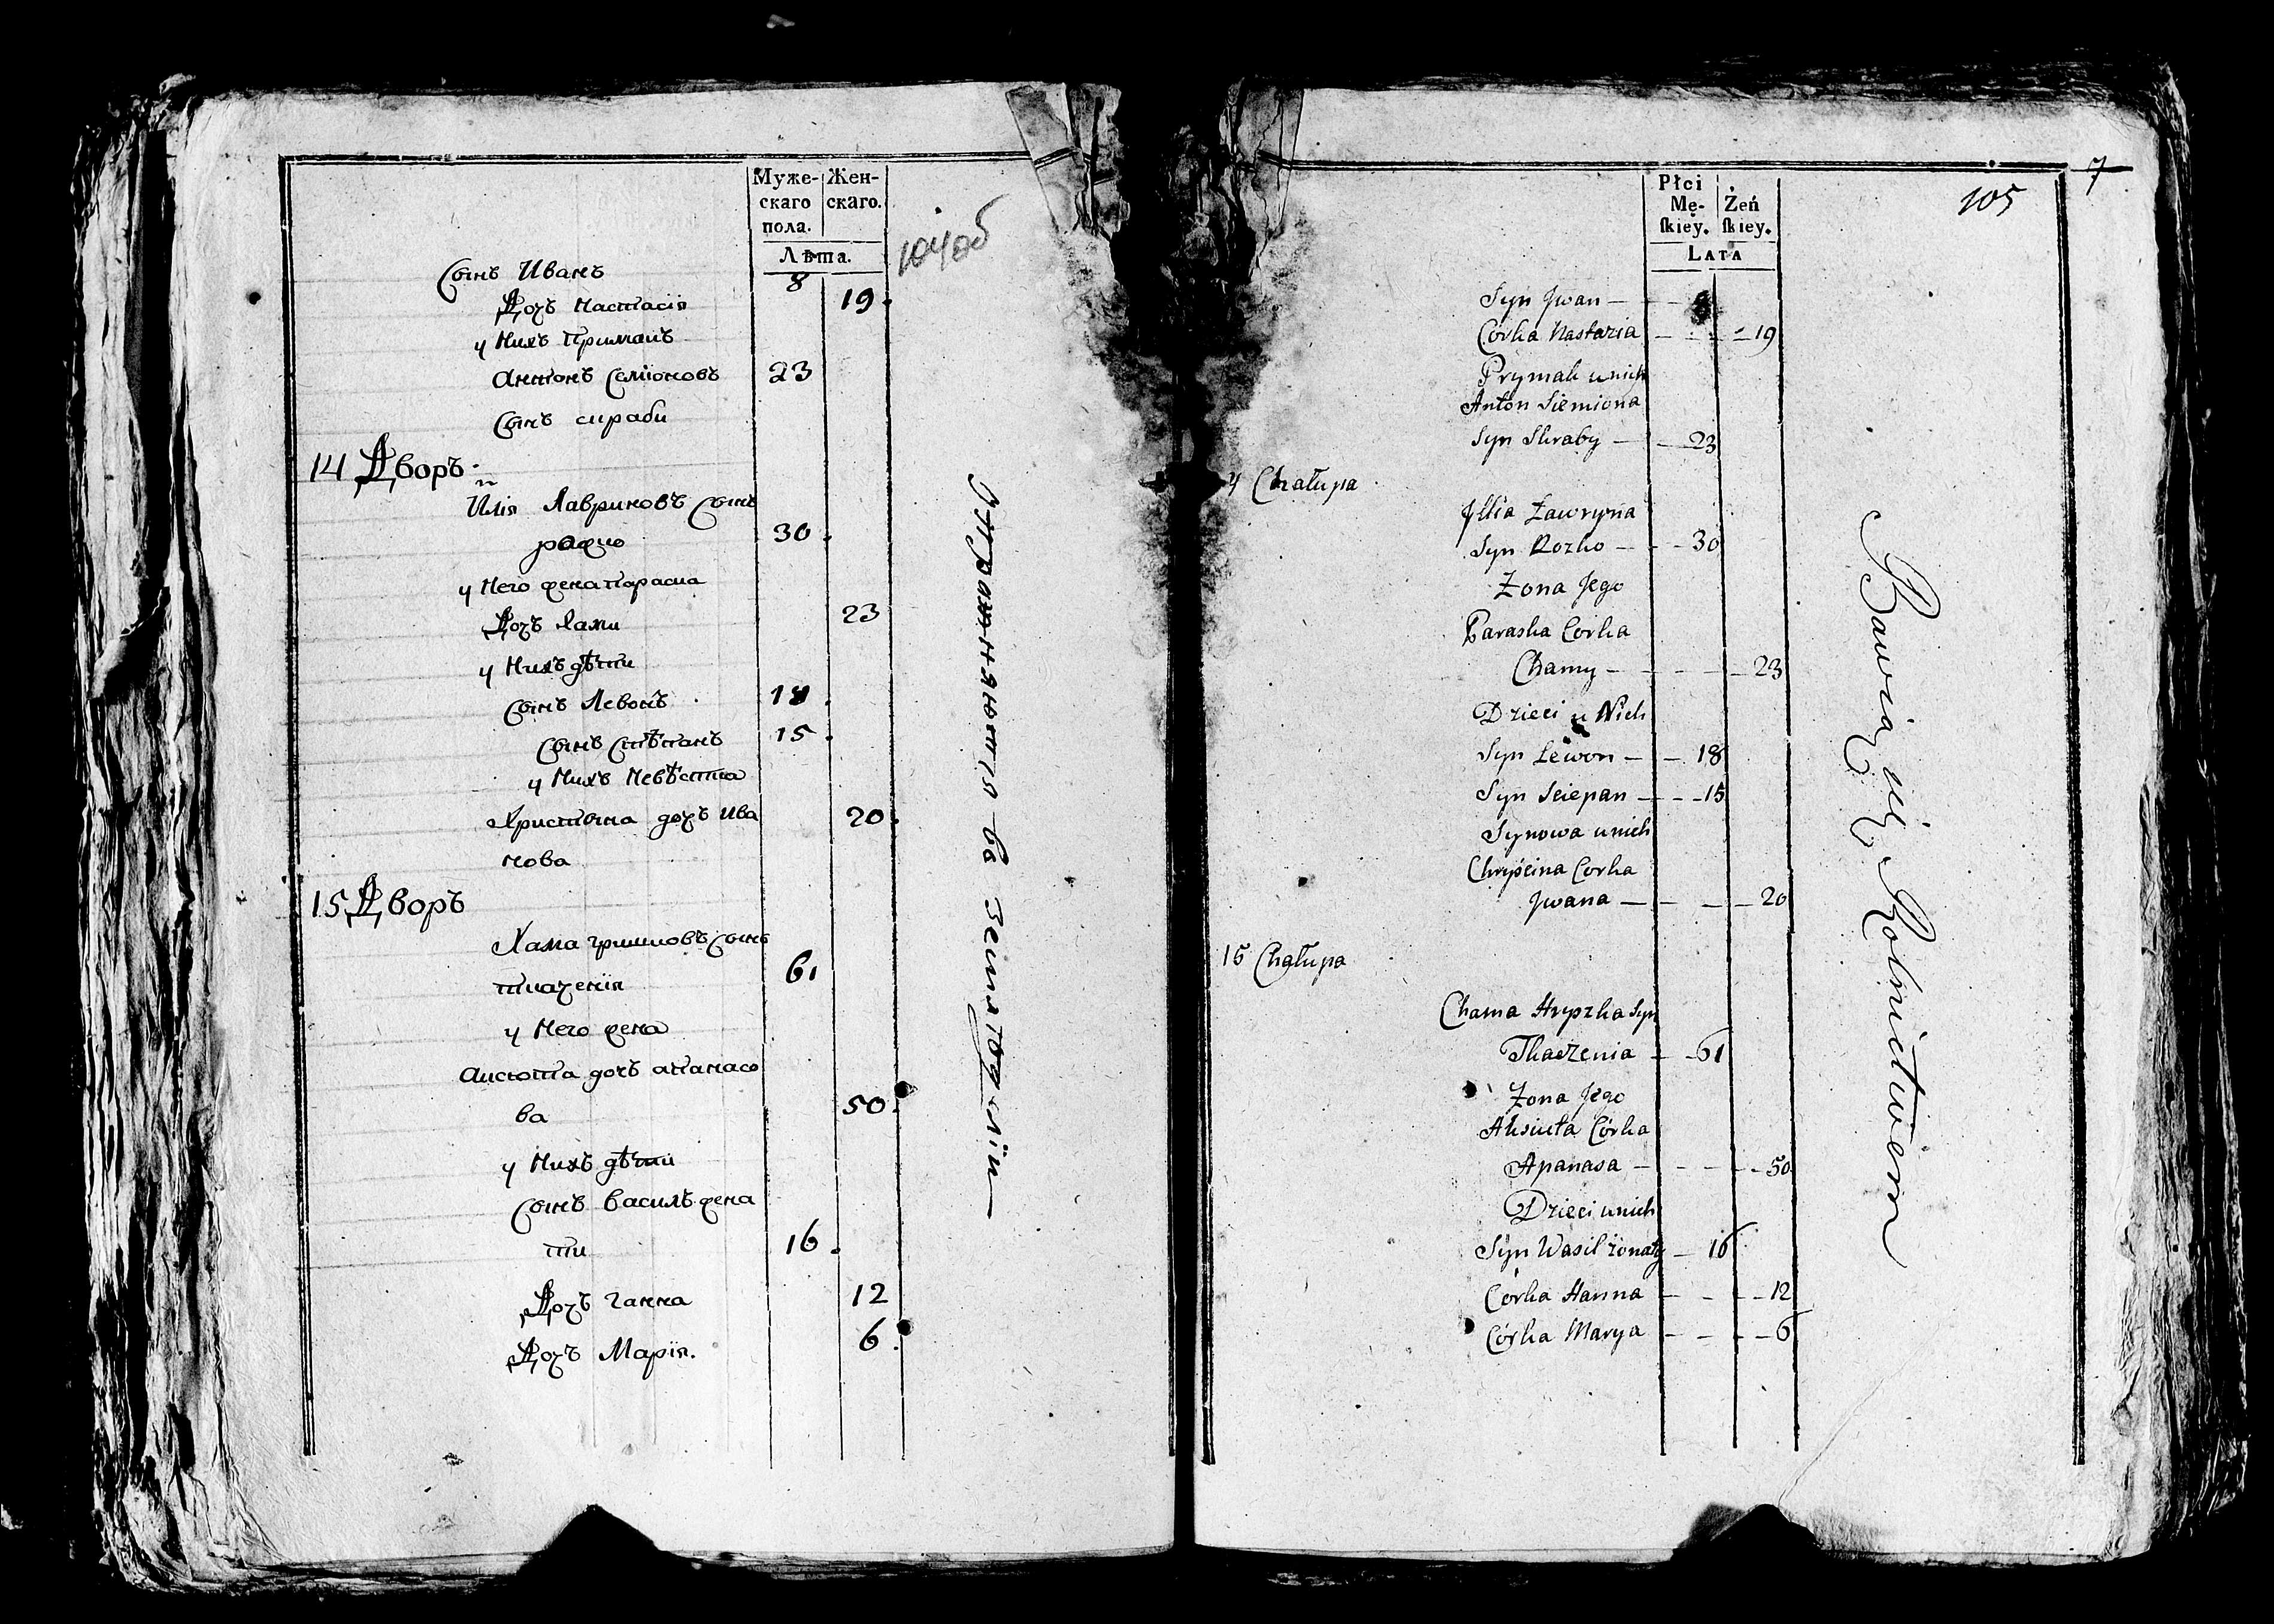 Муже-
скаго
пола.
Жен-
скаго.
Лѣта.
104об
Сынъ Иванъ 8
Дочъ Настасія 19.
у Нихъ Примакъ
Антонъ Семіоновъ 23
Сынъ скраби
14 Дворъ.
Илія Лавриновъ Сынъ
рожко 30.
у Него жена параска
Дочъ Хами 23
у Нихъ дѣти
Сынъ Левонъ 18.
Сынъ Стѣпанъ 15.
у Нихъ Невѣстка
Христына дочъ Ива 20.
нова
15 Дворъ
Хама гришковъ Сынъ
ткаченія 61
у Него жена
Аксюта дочъ апанасо
ва 50.
у Нихъ дѣти
Сынъ василъ жена
тий 16.
Дочъ ганна 12
Дочъ Марія. 6.
Упражняются в Земледѣліи
7
105
Płci
Mę-
skiey.
Żeń
skiey.
LATA
Syn Jwan —
Córka Nastazia — 19
Prymak u nich
Anton Siemiona
Syn Skraby — 23
4 Chałupa
Jllia Ławryna
Syn Rozko — 30
Żona Jego
Paraska Córka
Chamy — 23
Dzieci u Nich
Syn Lewon — 18
Syn Sciepan — 15
Synowa u nich
Chryścina Corka
Jwana — 20
15 Chałupa
Chama Hryszka Syn
Tkaczenia — 61
Żona Jego
Aksiuta Córka
Apanasa — 50
Dzieci u nich
Syn Wasil żonaty — 16
Córka Hanna — 12
Córka Marya — 6
Bawią się Rolnictwem